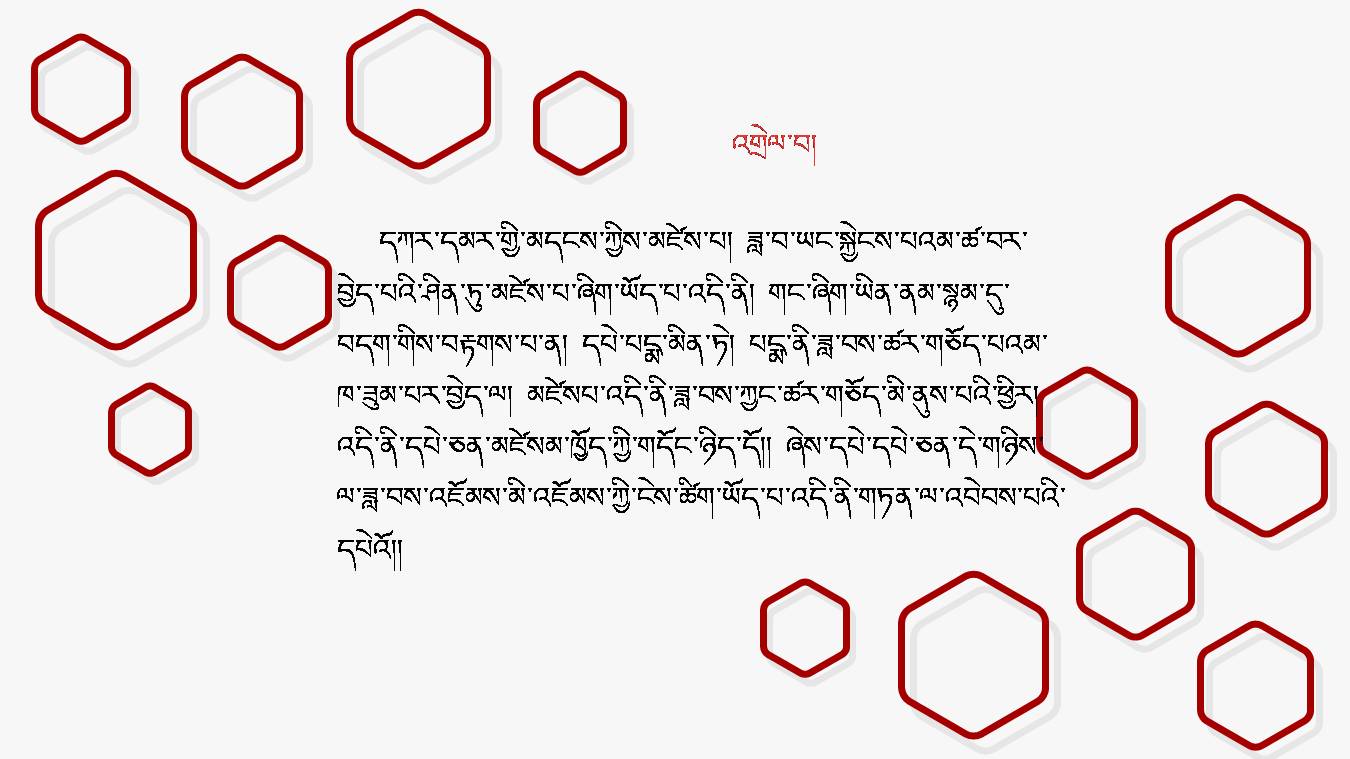 འགྲེལ་བ།
དཀར་དམར་གྱི་མདངས་ཀྱིས་མཛེས་པ། ཟླ་བ་ཡང་སྐྱེངས་པའམ་ཚ་བར་
བྱེད་པའི་ཤིན་ཏུ་མཛེས་པ་ཞིག་ཡོད་པ་འདི་ནི། གང་ཞིག་ཡིན་ནམ་སྙམ་དུ་
བདག་གིས་བརྟགས་པ་ན། དཔེ་པདྨ་མིན་ཏེ། པདྨ་ནི་ཟླ་བས་ཚར་གཅོད་པའམ་
ཁ་ཟུམ་པར་བྱེད་ལ། མཛེསཔ་འདི་ནི་ཟླ་བས་ཀྱང་ཚར་གཅོད་མི་ནུས་པའི་ཕྱིར།
འདི་ནི་དཔེ་ཅན་མཛེསམ་ཁྱོད་ཀྱི་གདོང་ཉིད་དོ།། ཞེས་དཔེ་དཔེ་ཅན་དེ་གཉིས་
ལ་ཟླ་བས་འཇོམས་མི་འཇོམས་ཀྱི་ངེས་ཚིག་ཡོད་པ་འདི་ནི་གཏན་ལ་འབེབས་པའི་
དཔེའོ།།